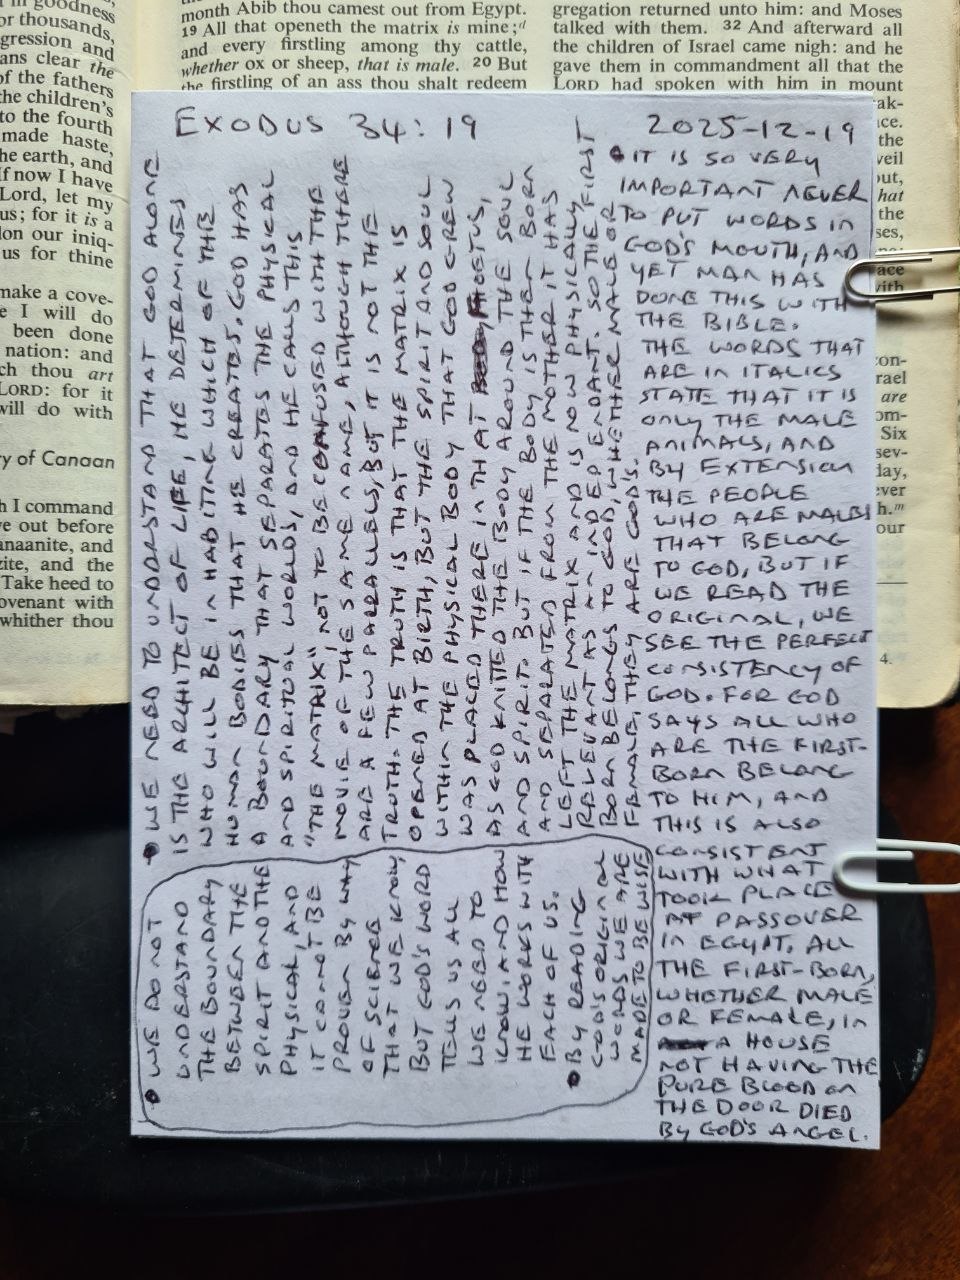 in goodness
or thousands,
gression and
ans clear the
of the fathers
the children's
to the fourth
made haste,
he earth, and
If now I have
Lord, let my
us; for it is a
don our iniq-
us for thine
make a cove-
e I will do
been done
nation: and
ch thou art
LORD: for it
will do with
ry of Canaan
h I command
ve out before
anaanite, and
zite, and the
Take heed to
ovenant with
whither thou
month Abib thou camest out from Egypt.
19 All that openeth the matrix is mine;d
and every firstling among thy cattle,
whether ox or sheep, that is male. 20 But
the firstling of an ass thou shalt redeem
gregation returned unto him: and Moses
talked with them. 32 And afterward all
the children of Israel came nigh: and he
gave them in commandment all that the
LORD had spoken with him in mount
ak-
ce.
the
veil
out,
hat
the
ses,
ace
with
con-
rael
are
om-
Six
sev-
day,
ever
h.m
our
4.
EXODUS 34:19
2025-12-19
• WE NEED TO UNDERSTAND THAT GOD ALONE
IS THE ARCHITECT OF LIFE, HE DETERMINES
WHO WILL BE INHABITING WHICH OF THE
HUMAN BODIES THAT HE CREATES. GOD HAS
A BOUNDARY THAT SEPARATES THE PHYSICAL
AND SPIRITUAL WORLDS, AND HE CALLS THIS
"THE MATRIX", NOT TO BE CONFUSED WITH THE
MOVIE OF THE SAME NAME, ALTHOUGH THERE
ARE A FEW PARRALLELS, BUT IT IS NOT THE
TRUTH. THE TRUTH IS THAT THE MATRIX IS
OPENED AT BIRTH, BUT THE SPIRIT AND SOUL
WITHIN THE PHYSICAL BODY THAT GOD GREW
WAS PLACED THERE IN THAT FOETUS,
AS GOD KNITTED THE BODY AROUND THE SOUL
AND SPIRIT. BUT IF THE BODY IS THEN BORN
AND SEPARATED FROM THE MOTHER IT HAS
LEFT THE MATRIX AND IS NOW PHYSICALLY
RELEVANT AS AN INDEPENDANT. SO THE FIRST
BORN BELONGS TO GOD, WHETHER MALE OR
FEMALE, THEY ARE GOD'S.
• WE DO NOT
UNDERSTAND
THE BOUNDARY
BETWEEN THE
SPIRIT AND THE
PHYSICAL, AND
IT CANNOT BE
PROVEN BY WAY
OF SCIENCE
THAT WE KNOW
BUT GOD'S WORD
TELLS US ALL
WE NEED TO
KNOW, AND HOW
HE WORKS WITH
EACH OF US.
• BY READING
GOD'S ORIGINAL
WORDS WE ARE
MADE TO BE WISE
• IT IS SO VERY
IMPORTANT NEVER
TO PUT WORDS IN
GOD'S MOUTH, AND
YET MAN HAS
DONE THIS WITH
THE BIBLE.
THE WORDS THAT
ARE IN ITALICS
STATE THAT IT IS
ONLY THE MALE
ANIMALS, AND
BY EXTENSION
THE PEOPLE
WHO ARE MALES
THAT BELONG
TO GOD, BUT IF
WE READ THE
ORIGINAL, WE
SEE THE PERFECT
CONSISTENCY OF
GOD. FOR GOD
SAYS ALL WHO
ARE THE FIRST-
BORN BELONG
TO HIM, AND
THIS IS ALSO
CONSISTENT
WITH WHAT
TOOK PLACE
AT PASSOVER
IN EGYPT. ALL
THE FIRST-BORN,
WHETHER MALE
OR FEMALE, IN
A HOUSE
NOT HAVING THE
PURE BLOOD ON
THE DOOR DIED
BY GOD'S ANGEL.